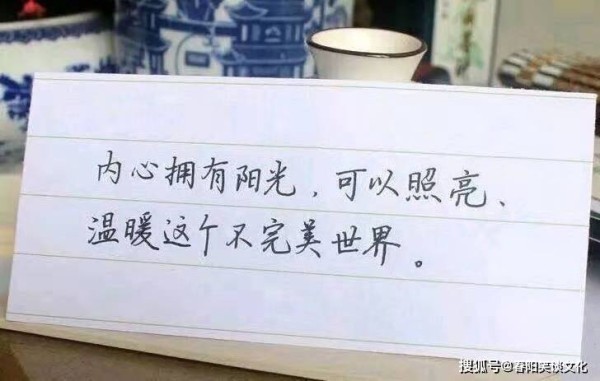 内心拥有阳光，可以照亮、
温暖这个不完美世界。
搜狐号@春阳笑谈文化